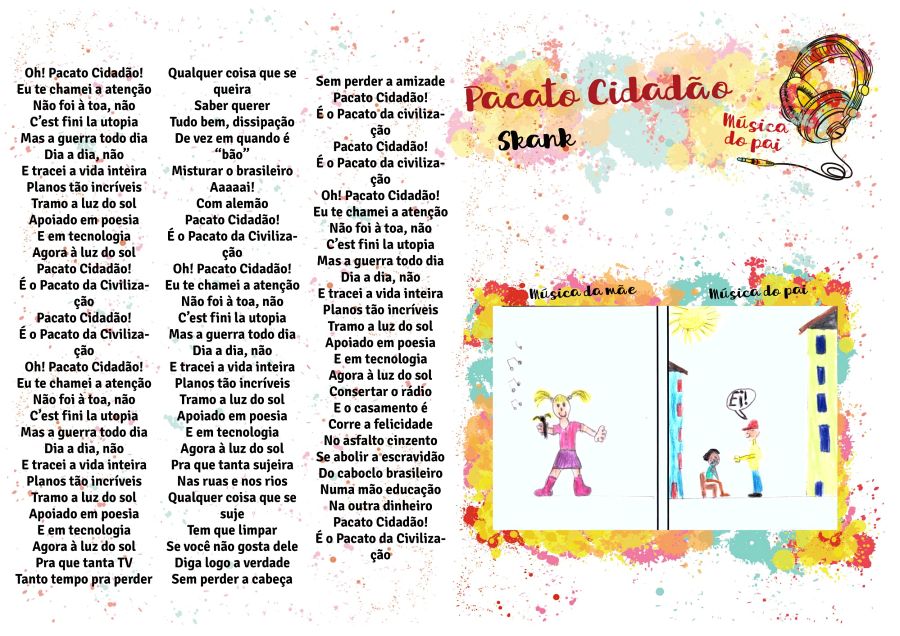 Oh! Pacato Cidadão!
Eu te chamei a atenção
Não foi à toa, não
C’est fini la utopia
Mas a guerra todo dia
Dia a dia, não
E tracei a vida inteira
Planos tão incríveis
Tramo a luz do sol
Apoiado em poesia
E em tecnologia
Agora à luz do sol
Pacato Cidadão!
É o Pacato da Civiliza-
ção
Pacato Cidadão!
É o Pacato da Civiliza-
ção
Oh! Pacato Cidadão!
Eu te chamei a atenção
Não foi à toa, não
C’est fini la utopia
Mas a guerra todo dia
Dia a dia, não
E tracei a vida inteira
Planos tão incríveis
Tramo a luz do sol
Apoiado em poesia
E em tecnologia
Agora à luz do sol
Pra que tanta TV
Tanto tempo pra perder
Qualquer coisa que se
queira
Saber querer
Tudo bem, dissipação
De vez em quando é
“bão”
Misturar o brasileiro
Aaaaai!
Com alemão
Pacato Cidadão!
É o Pacato da Civiliza-
ção
Oh! Pacato Cidadão!
Eu te chamei a atenção
Não foi à toa, não
C’est fini la utopia
Mas a guerra todo dia
Dia a dia, não
E tracei a vida inteira
Planos tão incríveis
Tramo a luz do sol
Apoiado em poesia
E em tecnologia
Agora à luz do sol
Pra que tanta sujeira
Nas ruas e nos rios
Qualquer coisa que se
suje
Tem que limpar
Se você não gosta dele
Diga logo a verdade
Sem perder a cabeça
Sem perder a amizade
Pacato Cidadão!
É o Pacato da civiliza-
ção
Pacato Cidadão!
É o Pacato da civiliza-
ção
Oh! Pacato Cidadão!
Eu te chamei a atenção
Não foi à toa, não
C’est fini la utopia
Mas a guerra todo dia
Dia a dia, não
E tracei a vida inteira
Planos tão incríveis
Tramo a luz do sol
Apoiado em poesia
E em tecnologia
Agora à luz do sol
Consertar o rádio
E o casamento é
Corre a felicidade
No asfalto cinzento
Se abolir a escravidão
Do caboclo brasileiro
Numa mão educação
Na outra dinheiro
Pacato Cidadão!
É o Pacato da Civiliza-
ção
Pacato Cidadão
Skank
Música
do pai
Música da mãe
Música do pai
EI!